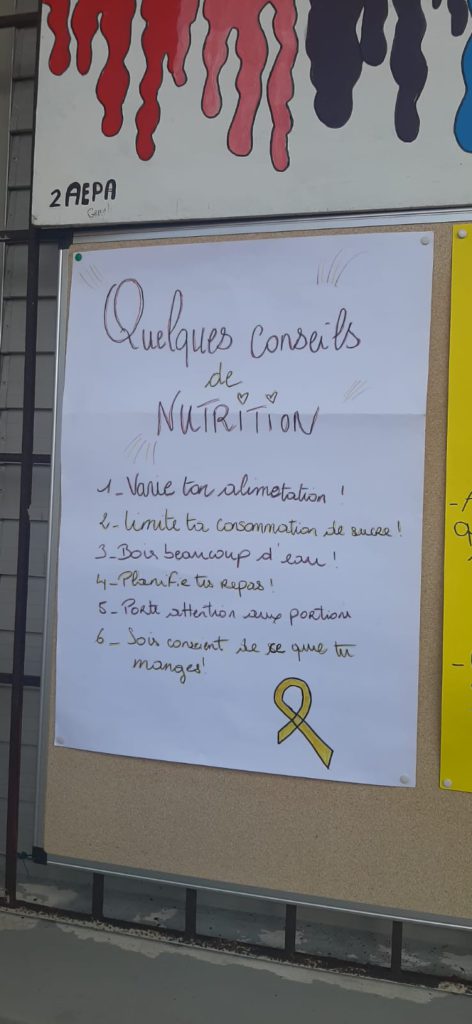 2 AEPA
Quelques conseils
de
NUTRITION
1_ Varie ton alimetation !
2_ limite ta consommation de sucre !
3_ Bois beaucoup d'eau !
4_ Planifie tes repas !
5_ Porte attention aux portions
6_ Sois conscient de ce que tu
manges !